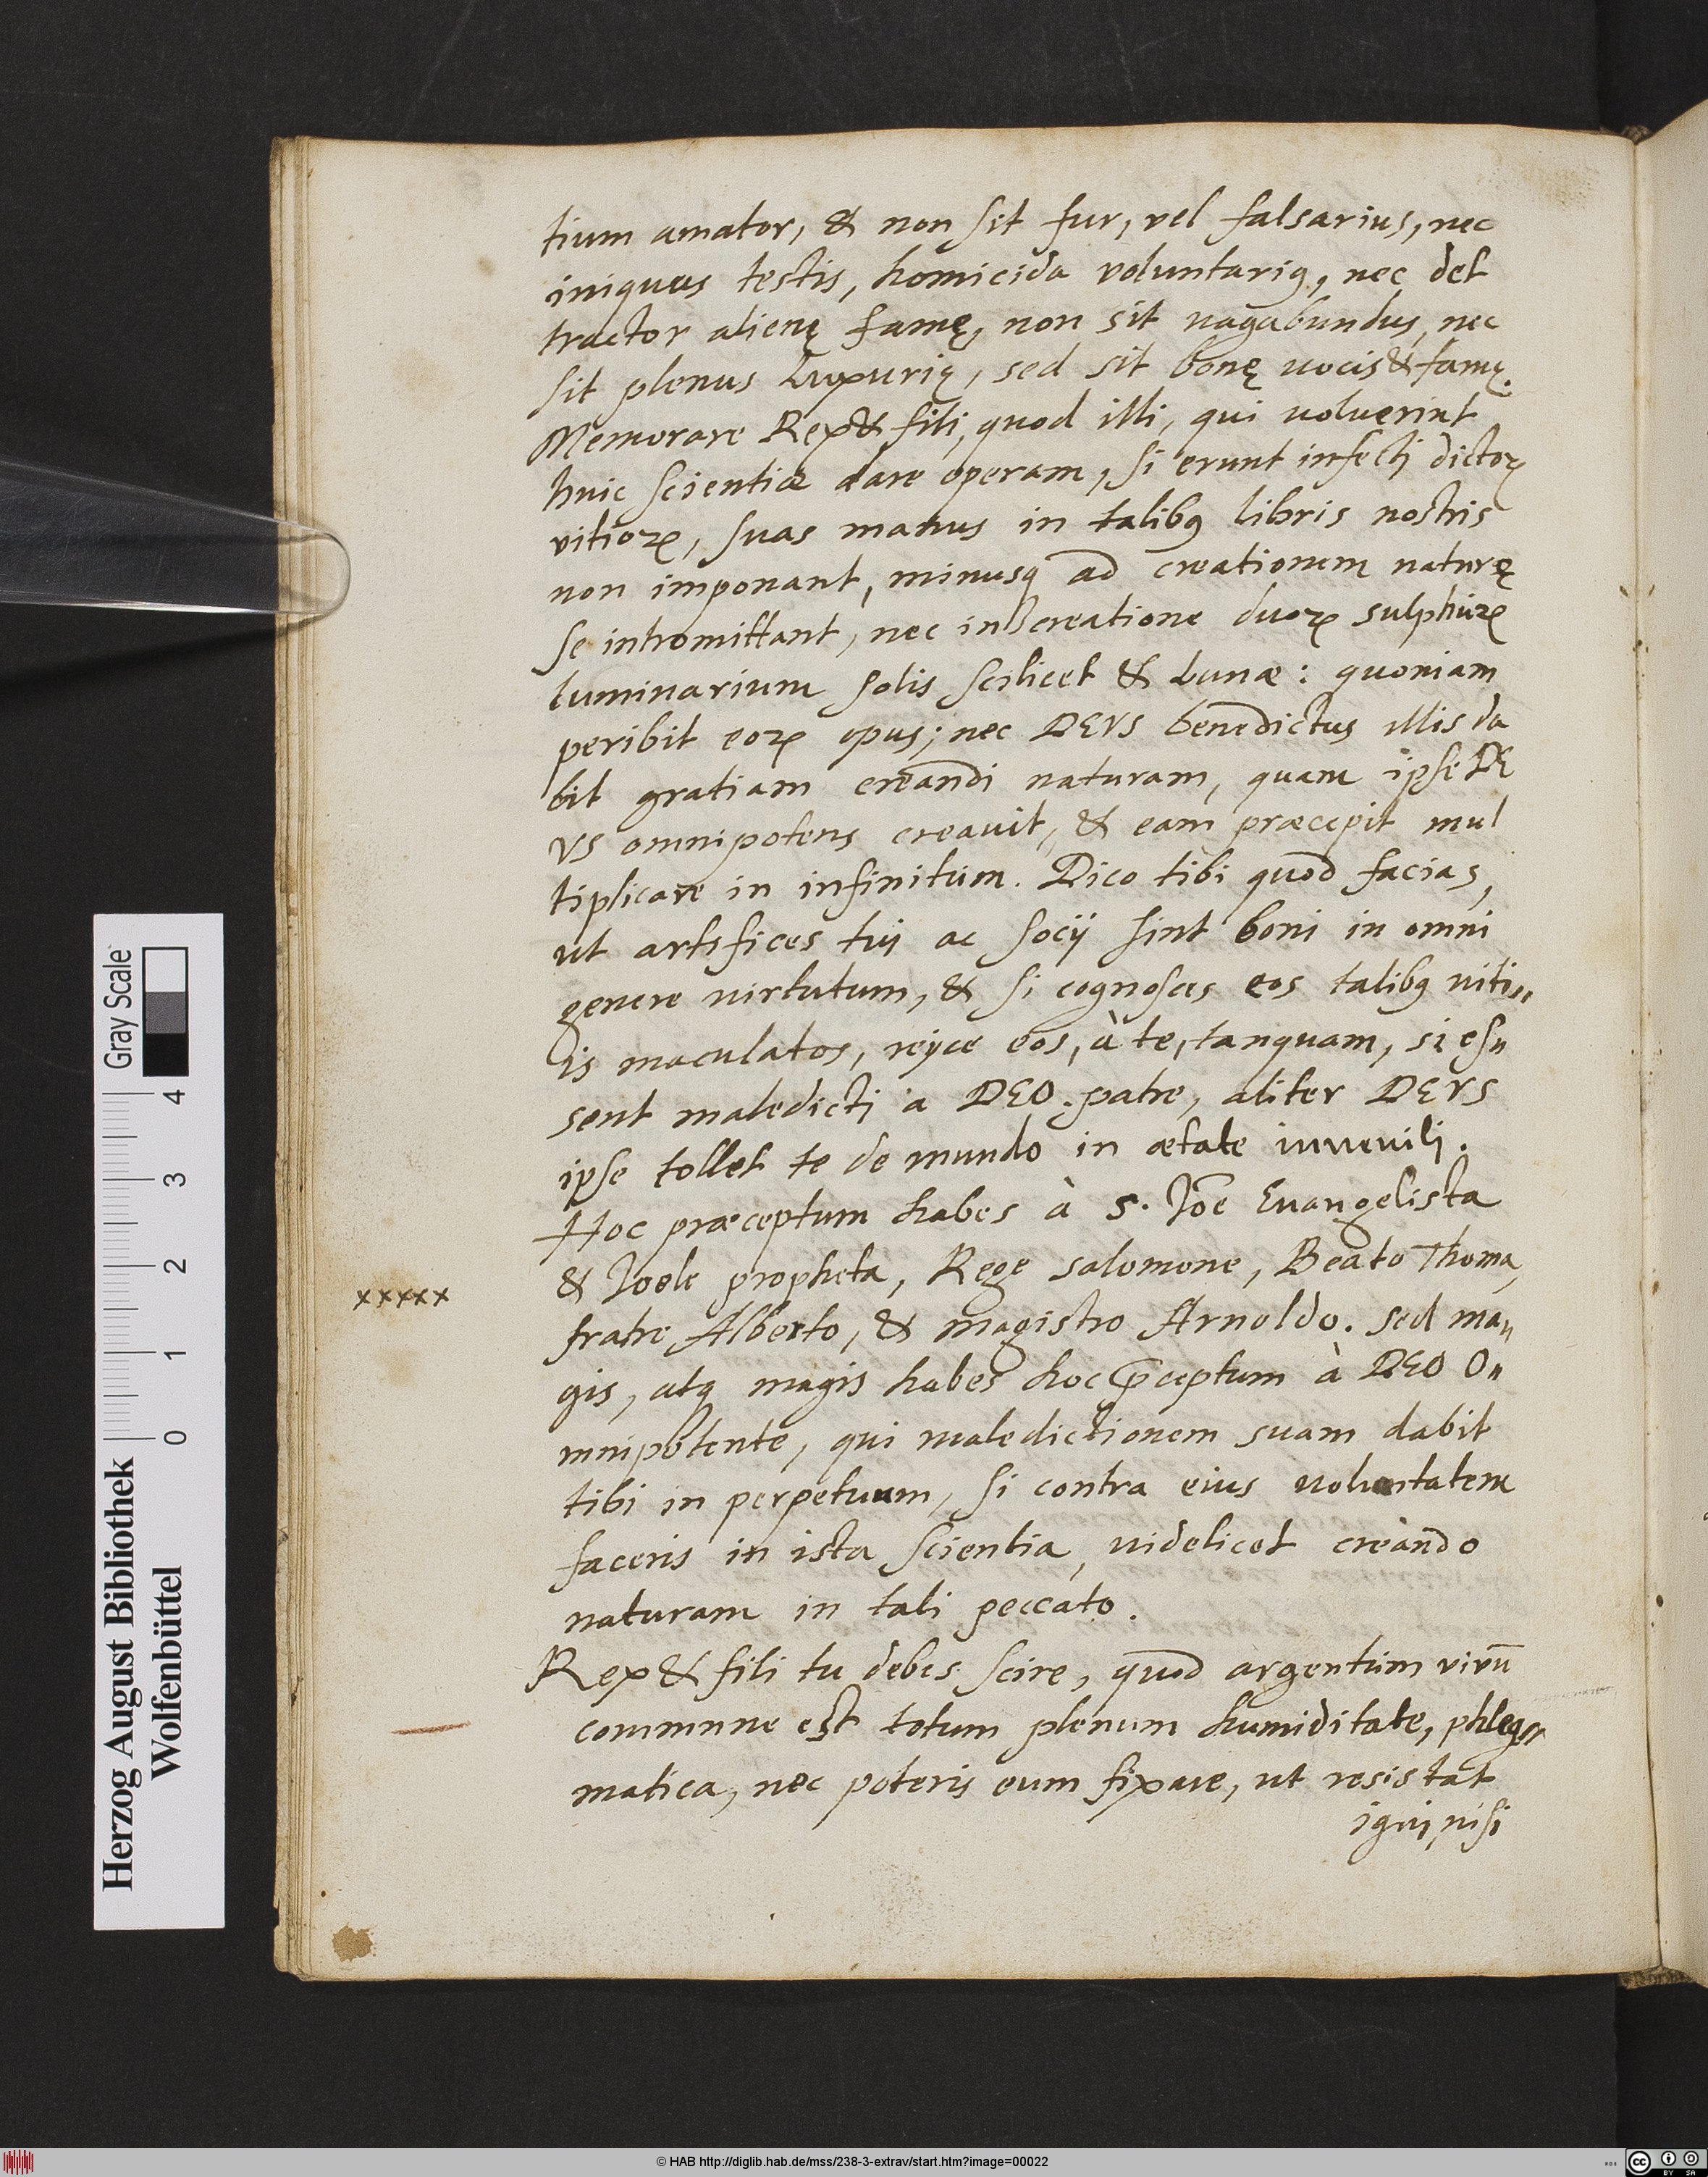 tium amator, & non sit fur, vel falsarius, nec
iniquus testis, homicida voluntariꝰ, nec det
tractor alienę famę, non sit vagabundus, nec
sit plenus Luxurię, sed sit bonę uocis & famę.
Memorare Rex & fili, quod illi, qui uoluerint
huic scientiæ dare operam, si erunt infecti dictoꝝ
vitioꝝ, suas manus in talibꝰ libris nostris
non imponant, minusqꝫ ad creationem naturę
se intromittant, nec in creatione duoꝝ sulphuꝝ
luminarium solis scilicet & Lunæ: quoniam
peribit eoꝝ opus; nec DEVS benedictus illis da
bit gratiam creandi naturam, quam ipse DE
VS omnipotens creauit, & eam præcepit mul
tiplicare in infinitum. Dico tibi quod facias,
ut artifices tui ac socij sint boni in omni
genere uirtutum, & si cognosces eos talibꝰ uiti„
is maculatos, reijce eos, à te, tanquam, si es„
sent maledicti a DEO patre, aliter DEVS
ipse tollet te de mundo in ætate iuuenili.
Hoc præceptum habes à S. Joe͂ Euangelista
& Joele propheta, Rege Salomone, Beato Thoma,
xxxxx
fratre Alberto, & magistro Arnoldo. sed ma„
gis, atqꝫ magis habes hoc p̄ceptum à DEO O„
mnipotente, qui maledictionem suam dabit
tibi in perpetuum, si contra eius uoluntatem
faceris in ista scientia, uidelicet creando
naturam in tali peccato.
Rex & fili tu debes scire, quod argentum vivū
commune est totum plenum humiditate, phleg„
matica, nec poteris eum fixare, ut resistat
igni, nisi
Herzog August Bibliothek
Wolfenbüttel
0 1 2 3 4
Gray Scale
© HAB http://diglib.hab.de/mss/238-3-extrav/start.htm?image=00022